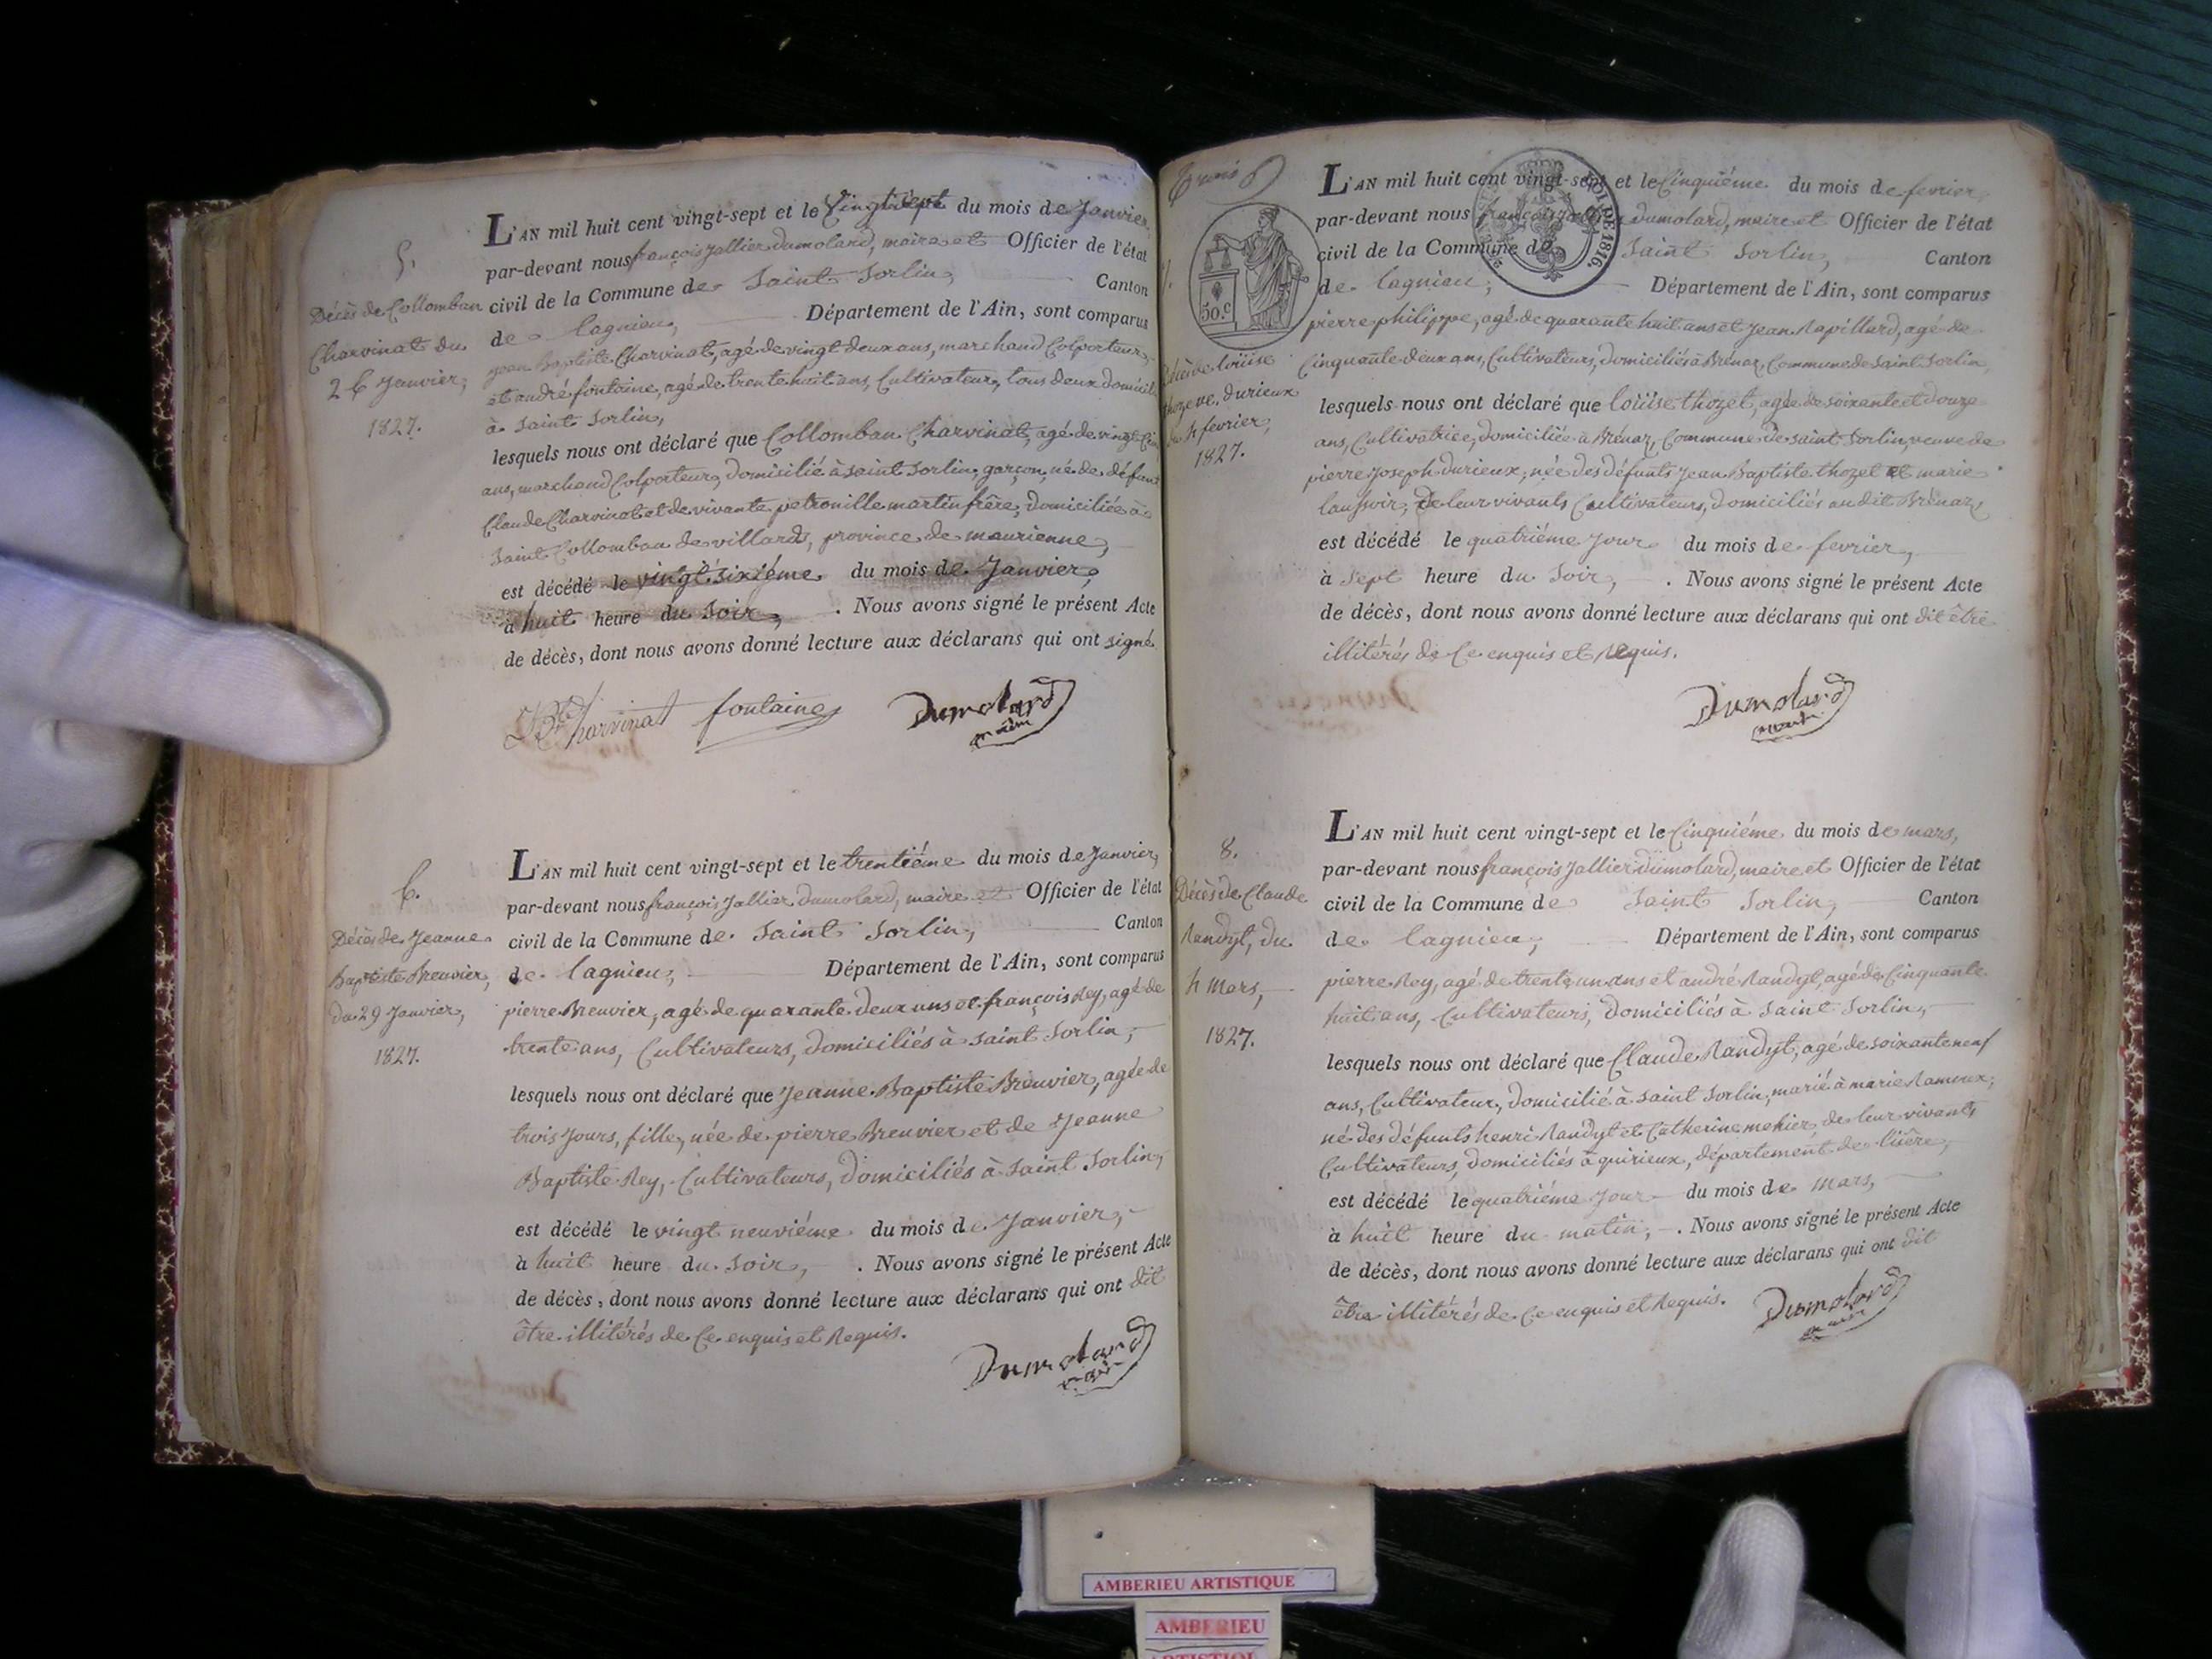 5.
Décès de Collomban
Charvinat du
26 Janvier,
1827.
L'AN mil huit cent vingt-sept et le Vingt sept du mois de Janvier,
par-devant nous françois Jallier dumolard, maire et Officier de l'état
civil de la Commune de Saint Sorlin, Canton
de lagnieu, Département de l'Ain, sont comparus
jean Baptiste Charvinat, agé de vingt deux ans, marchand Colporteur,
et andré fontaine, agé de trente huit ans, Cultivateur, tous deux domicil
à Saint Sorlin,
lesquels nous ont déclaré que Collomban Charvinat, agé de vingt
ans, marchand Colporteur, domicilié à saint Sorlin, garçon, né de défunt
Claude Charvinat et de vivante petronille martin frêre, domiciliée à
Saint Collomban de villards, province de maurienne,
est décédé le vingt sixiéme du mois de Janvier,
à huit heure du Soir, . Nous avons signé le présent Acte
de décès, dont nous avons donné lecture aux déclarans qui ont signé.
JBte Charvinat fontaine Dumolard
maire
6.
Décès de Jeanne
Baptiste Breuvier,
du 29 Janvier,
1827.
L'AN mil huit cent vingt-sept et le trentiéme du mois de Janvier,
par-devant nous françois Jallier dumolard, maire et Officier de l'état
civil de la Commune de Saint Sorlin, Canton
de lagnieu, Département de l'Ain, sont comparus
pierre Breuvier, agé de quarante deux ans et françois Rey, agé de
trente ans, Cultivateurs, domiciliés à saint Sorlin,
lesquels nous ont déclaré que Jeanne Baptiste Breuvier, agée de
trois Jours, fille, née de pierre Breuvier et de Jeanne
Baptiste Rey, Cultivateurs, domiciliés à Saint Sorlin,
est décédé le vingt neuviéme du mois de Janvier,
à huit heure du Soir, . Nous avons signé le présent Acte
de décès, dont nous avons donné lecture aux déclarans qui ont dit
être illitérés de Ce enquis et Requis.
Dumolard
maire
50.c
LOI DE 1816.
7.
Décès de loüise
thozet ve. durieux
du 4 fevrier,
1827.
L'AN mil huit cent vingt-sept et le Cinquiéme du mois de fevrier,
par-devant nous françois Jallier dumolard, maire et Officier de l'état
civil de la Commune de Saint Sorlin, Canton
de lagnieu, Département de l'Ain, sont comparus
pierre philippe, agé de quarante huit ans et Jean Rapillard, agé de
Cinquante deux ans, Cultivateurs, domiciliés à Brénaz, Commune de saint Sorlin,
lesquels nous ont déclaré que loüise thozet, agée de soixante et douze
ans, Cultivatrice, domiciliée à Brénaz, Commune de saint Sorlin, veuve de
pierre Joseph durieux, née des défunts Jean Baptiste thozet et marie
de leur vivants Cultivateurs, domiciliés au dit Brénaz,
est décédé le quatriéme Jour du mois de fevrier,
à Sept heure du Soir, . Nous avons signé le présent Acte
de décès, dont nous avons donné lecture aux déclarans qui ont dit être
illitérés de Ce enquis et Requis.
Dumolard
maire
8.
Décès de Claude
Randyt, du
4 Mars,
1827.
L'AN mil huit cent vingt-sept et le Cinquiéme du mois de mars,
par-devant nous françois Jallier dumolard, maire et Officier de l'état
civil de la Commune de Saint Sorlin, Canton
de lagnieu, Département de l'Ain, sont comparus
pierre Rey, agé de trente un ans et andré Randyt, agé de Cinquante
huit ans, Cultivateurs, domiciliés à Saint Sorlin,
lesquels nous ont déclaré que Claude Randyt, agé de soixante neuf
ans, Cultivateur, domicilié à saint Sorlin, marié à marie Rameux,
né des défunts henri Randyt et Catherine mehier, de leur vivants
Cultivateurs, domiciliés à quirieux, département de liière,
est décédé le quatriéme Jour du mois de Mars,
à huit heure du matin, . Nous avons signé le présent Acte
de décès, dont nous avons donné lecture aux déclarans qui ont dit
être illitérés de Ce enquis et Requis. Dumolard
maire
AMBERIEU ARTISTIQUE
AMBERIEU
ARTISTIQUE